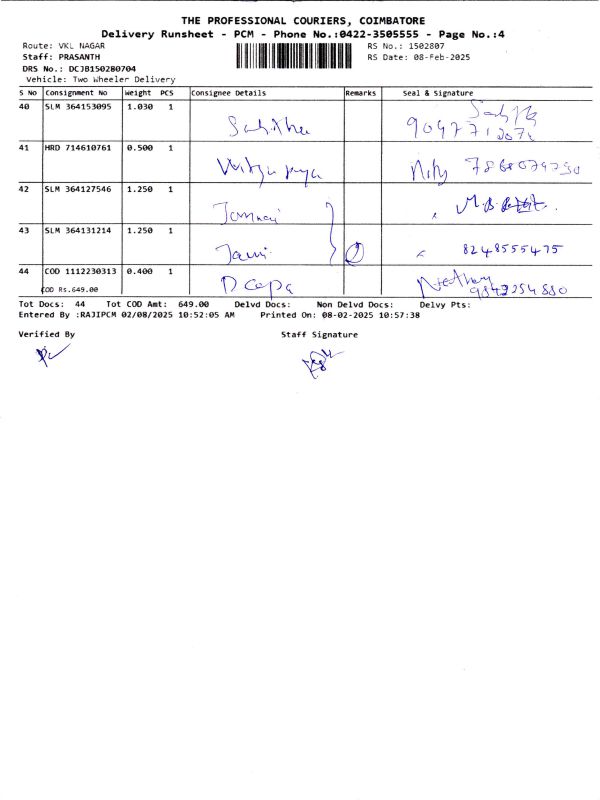 THE PROFESSIONAL COURIERS, COIMBATORE
Delivery Runsheet - PCM - Phone No.:0422-3505555 - Page No.:4
Route: VKL NAGAR RS No.: 1502807
Staff: PRASANTH RS Date: 08-Feb-2025
DRS No.: DCJB150280704
Vehicle: Two Wheeler Delivery
S No Consignment No Weight PCS Consignee Details Remarks Seal & Signature
40 SLM 364153095 1.030 1
41 HRD 714610761 0.500 1
42 SLM 364127546 1.250 1
43 SLM 364131214 1.250 1 8248555475
44 COD 1112230313 0.400 1 Deepa
COD Rs.649.00
Tot Docs: 44 Tot COD Amt: 649.00 Delvd Docs: Non Delvd Docs: Delvy Pts:
Entered By :RAJIPCM 02/08/2025 10:52:05 AM Printed On: 08-02-2025 10:57:38
Verified By Staff Signature